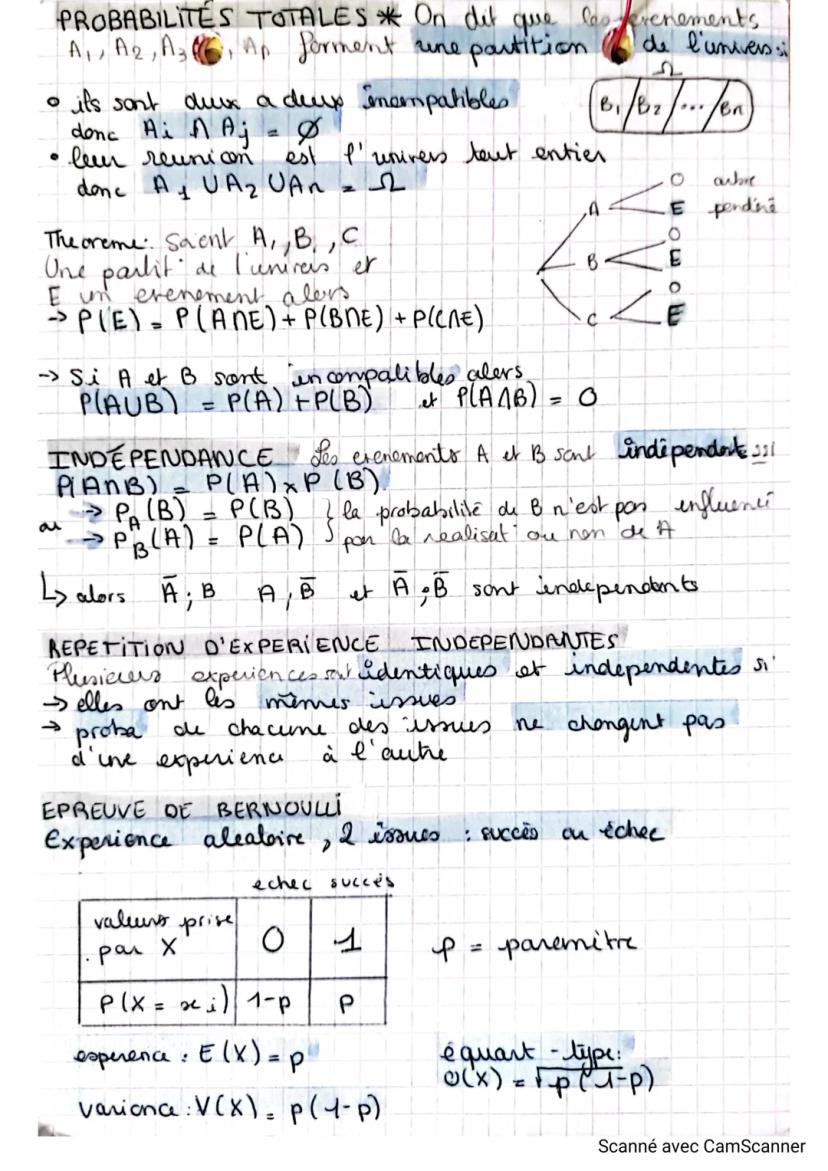 PROBABILITÉS TOTALES * On dit que les evenements
A1, A2, A3, An forment une partition de l'univers si
o ils sont deux a deux incompatibles
donc Ai ∩ Aj = Ø
Ω
B1 / B2 / ... / Bn
• leur reunion est l'univers tout entier
donc A1 ∪ A2 ∪ An = Ω
A O E
B O E
C O E
arbre
Theoreme: Soient A, , B, , C
Une partit° de l'univers et
E un evenement alors
→ P(E) = P(A∩E) + P(B∩E) + P(C∩E)
→ Si A et B sont incompatibles alors
P(A∪B) = P(A) + P(B) et P(A∩B) = 0
INDÉPENDANCE Les evenements A et B sont indépendants ssi
P(A∩B) = P(A) x P(B)
→ PA(B) = P(B) } la probabilité de B n'est pas influencé
ou → PB(A) = P(A) } par la realisat° ou non de A
↳ alors Ā ; B A , B̄ et Ā ; B̄ sont independants
REPETITION D'EXPERIENCE INDEPENDANTES
Plusieurs experiences sont identiques et independentes si
→ elles ont les mêmes issues
→ proba de chacune des issues ne changent pas
d'une experience à l'autre
EPREUVE DE BERNOULLI
Experience aleatoire , 2 issues : succès ou échec
echec succès
valeurs prise par X 0 1
P(X = xi) 1-p p
p = paremètre
esperence : E(X) = p
équart - type:
σ(X) = √p(1-p)
variance : V(X) = p(1-p)
Scanné avec CamScanner